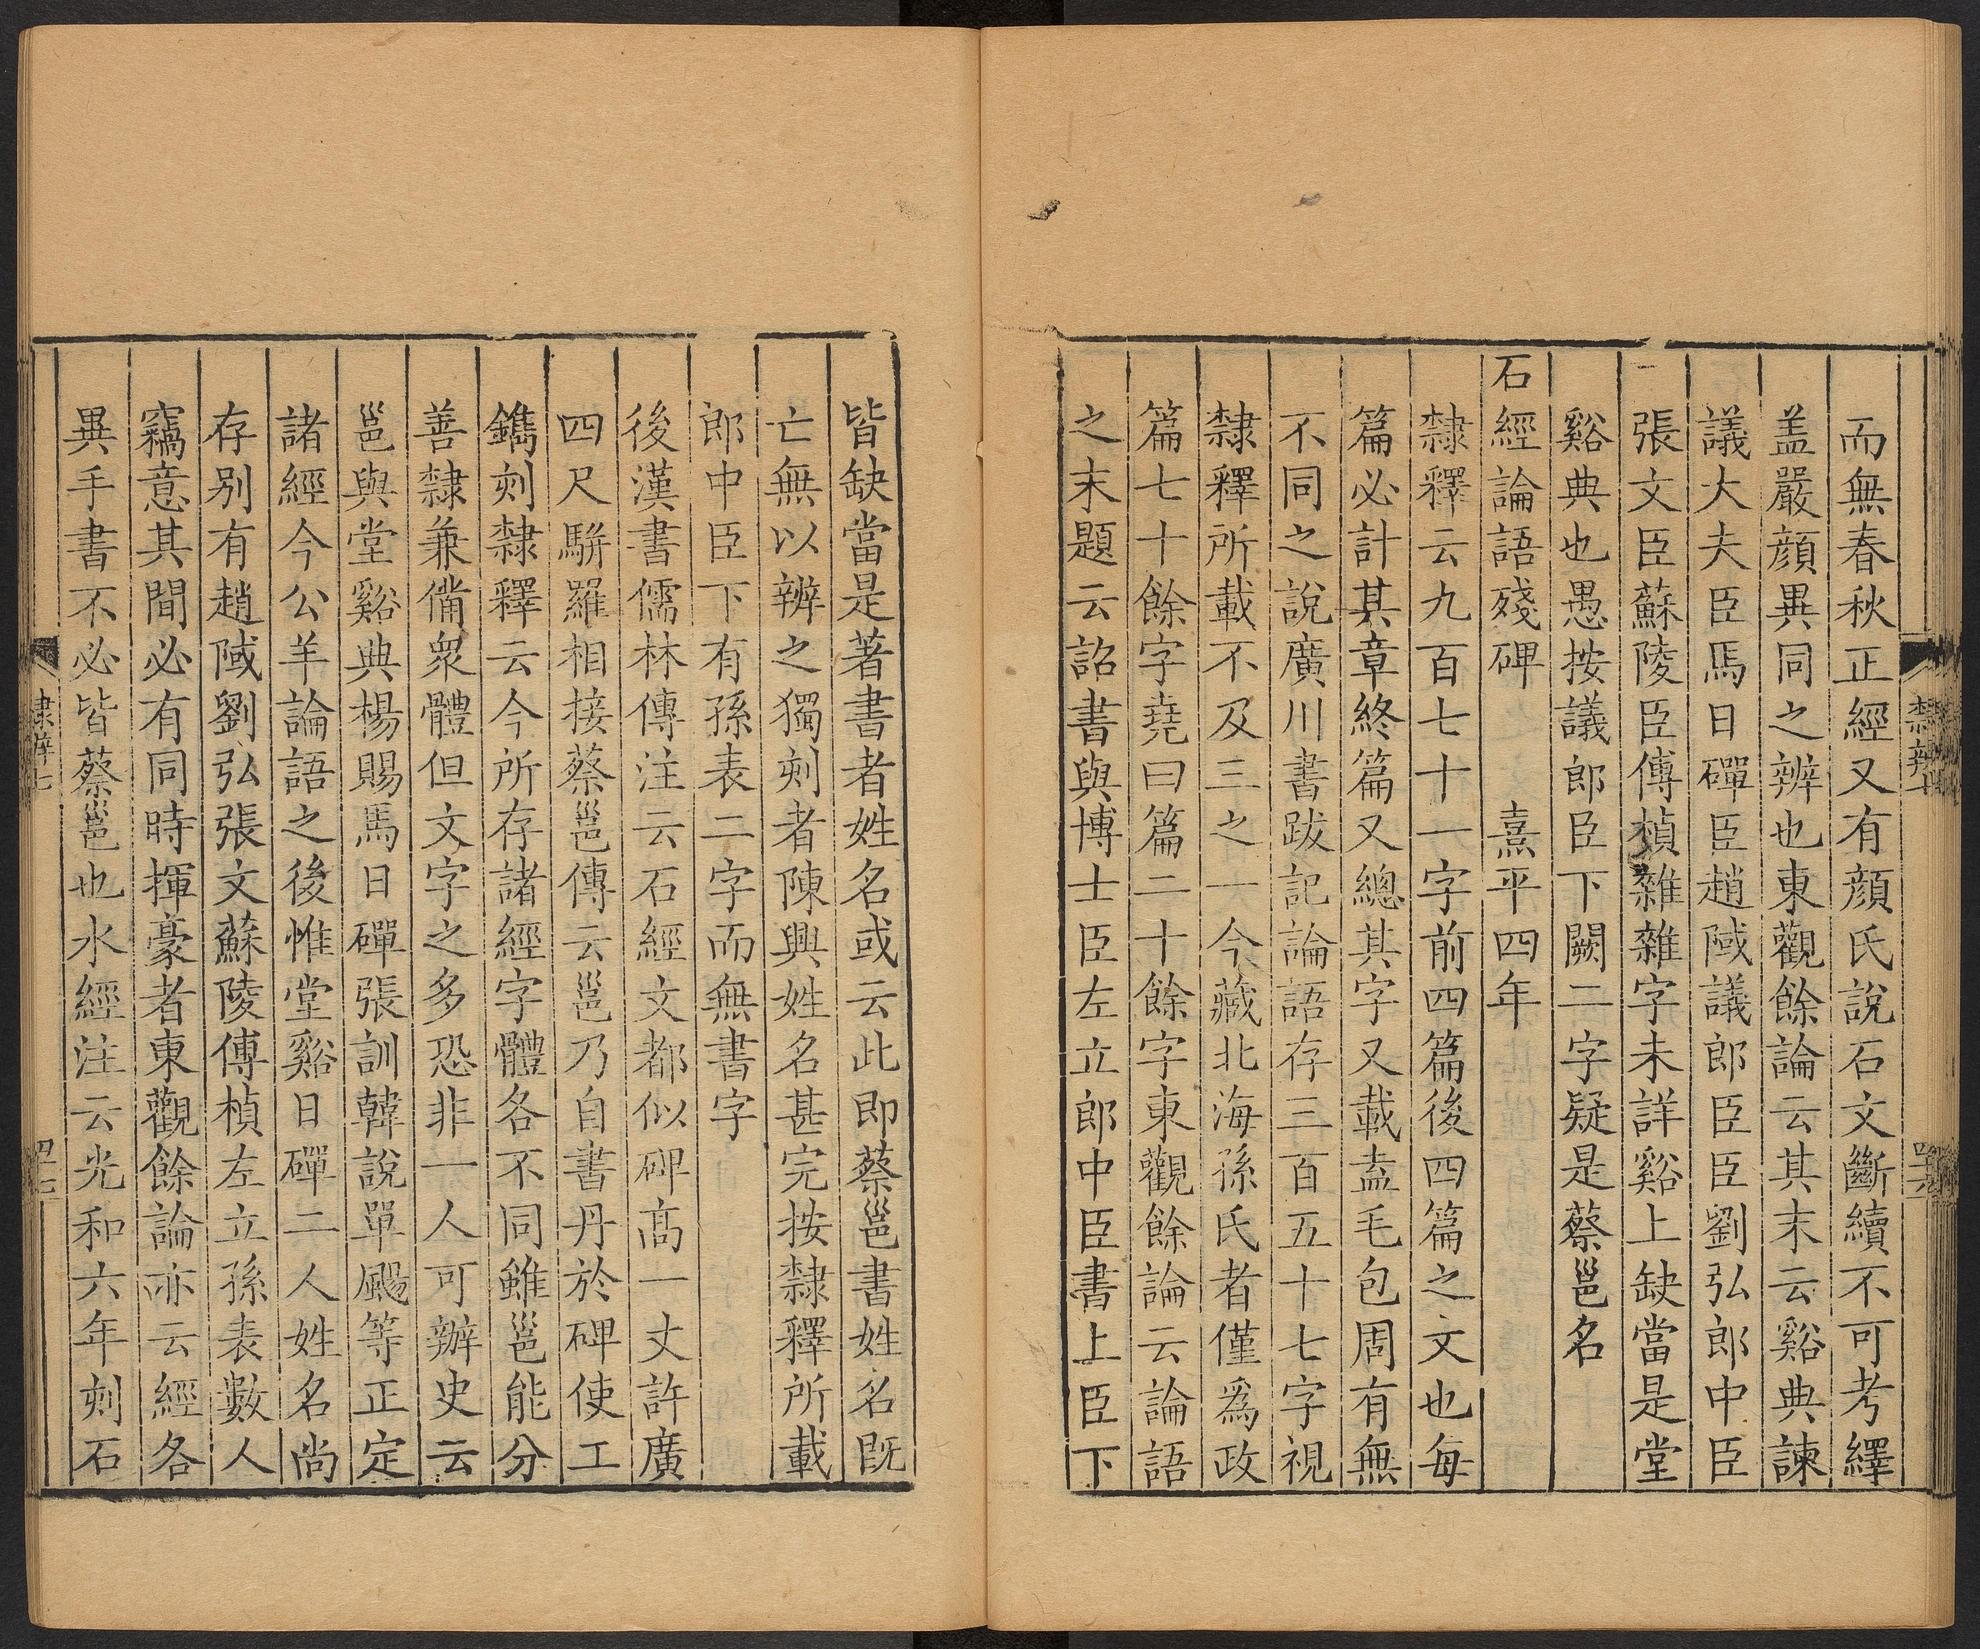 而無春秋正經又有顔氏說石文斷續不可考繹
盖嚴顔異同之辨也東觀餘論云其末云谿典諫
議大夫臣馬日磾臣趙㦽議郎臣臣劉弘郎中臣
張文臣蘇陵臣傅楨雜雜字未詳谿上缺當是堂
谿典也愚按議郎臣下闕二字疑是蔡邕名
石經論語殘碑 熹平四年
隸釋云九百七十一字前四篇後四篇之文也每
篇必計其章終篇又總其字又載盍毛包周有無
不同之說廣川書跋記論語存三百五十七字視
隸釋所載不及三之一今藏北海孫氏者僅爲政
篇七十餘字堯曰篇二十餘字東觀餘論云論語
之末題云詔書與博士臣左立郎中臣書上臣下
皆缺當是著書者姓名或云此即蔡邕書姓名旣
亡無以辨之獨刻者陳興姓名甚完按隸釋所載
郎中臣下有孫表二字而無書字
後漢書儒林傳注云石經文都似碑高一丈許廣
四尺駢羅相接蔡邕傳云邕乃自書丹於碑使工
鐫刻隸釋云今所存諸經字體各不同雖邕能分
善隸兼備衆體但文字之多恐非一人可辦史云
邕與堂谿典楊賜馬日磾張訓韓說單颺等正定
諸經今公羊論語之後惟堂谿日磾二人姓名尚
存别有趙㦽劉弘張文蘇陵傅楨左立孫表數人
竊意其間必有同時揮豪者東觀餘論亦云經各
異手書不必皆蔡邕也水經注云光和六年刻石
隸辨七
四十六
隸辨七
四十七